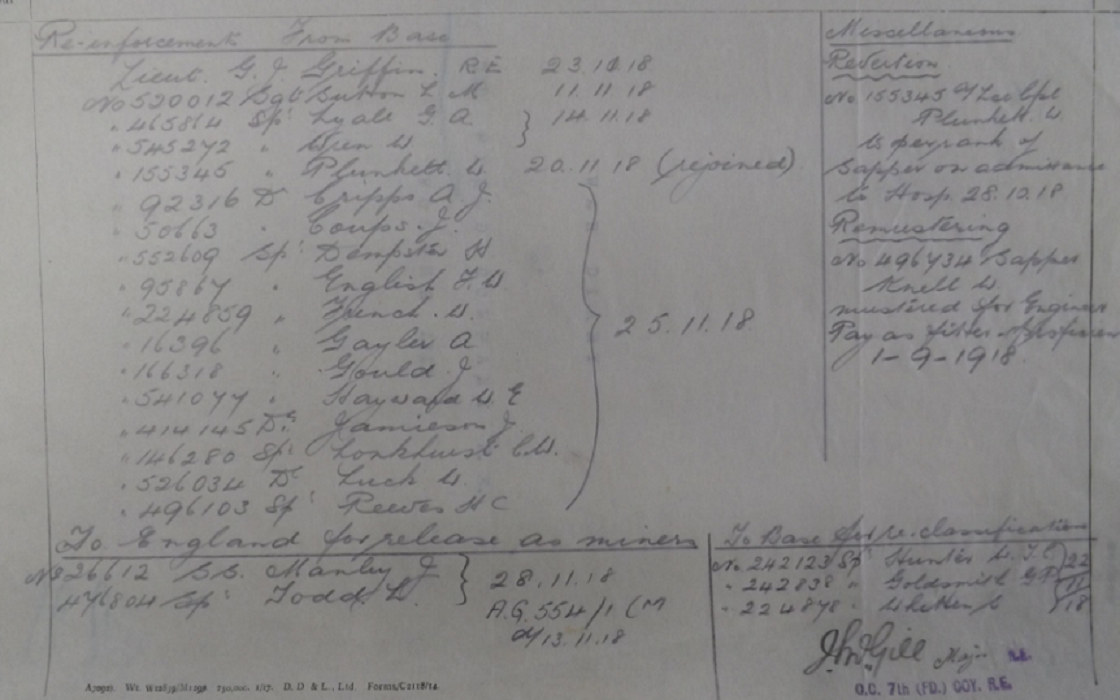 Re-inforcements From Base
Lieut. G. J. Griffin. R E 23.10.18
No 520012 Sgt Button L M 11.11.18
" 465864 Spr Lyall G. A. } 14.11.18
" 545272 " Wren W
" 155345 " Plunkett. W 20.11.18 (rejoined)
" 92316 Dr Cripps A J.
" 50663 " Coups. J.
" 552609 Spr Dempster H
" 95867 " English F. W.
" 224859 " French. W. } 25.11.18
" 16396 " Gayler A
" 166318 " Gould J
" 541077 " Hayward W E
" 414145 Dr Jamieson J.
" 146280 Spr Lonkhurst C. W.
" 526034 Dr Luck W.
" 496103 Spr Reeves H C
To England for release as miners
No 526612 S.S. Manley J } 28.11.18
476804 Spr Todd. W. A.G. 554/1 (M
d/13.11.18
Miscellaneous
Reversion
No 155345 A/Lce Cpl
Plunkett. W
to perm rank of
Sapper on admittance
to Hosp 28.10.18
Remustering
No 496734 Sapper
Knell W
mustered for Engineer
Pay as fitter
1-9-1918.
To Base for re-classification
No 242123 Spr Hunter W. J. C } 22
" 242838 " Goldsmith G F } 11
" 224878 " } 18
Major R.E.
O.C. 7th (FD.) COY. R.E.
D. D & L., Ltd. Forms/C2118/14.